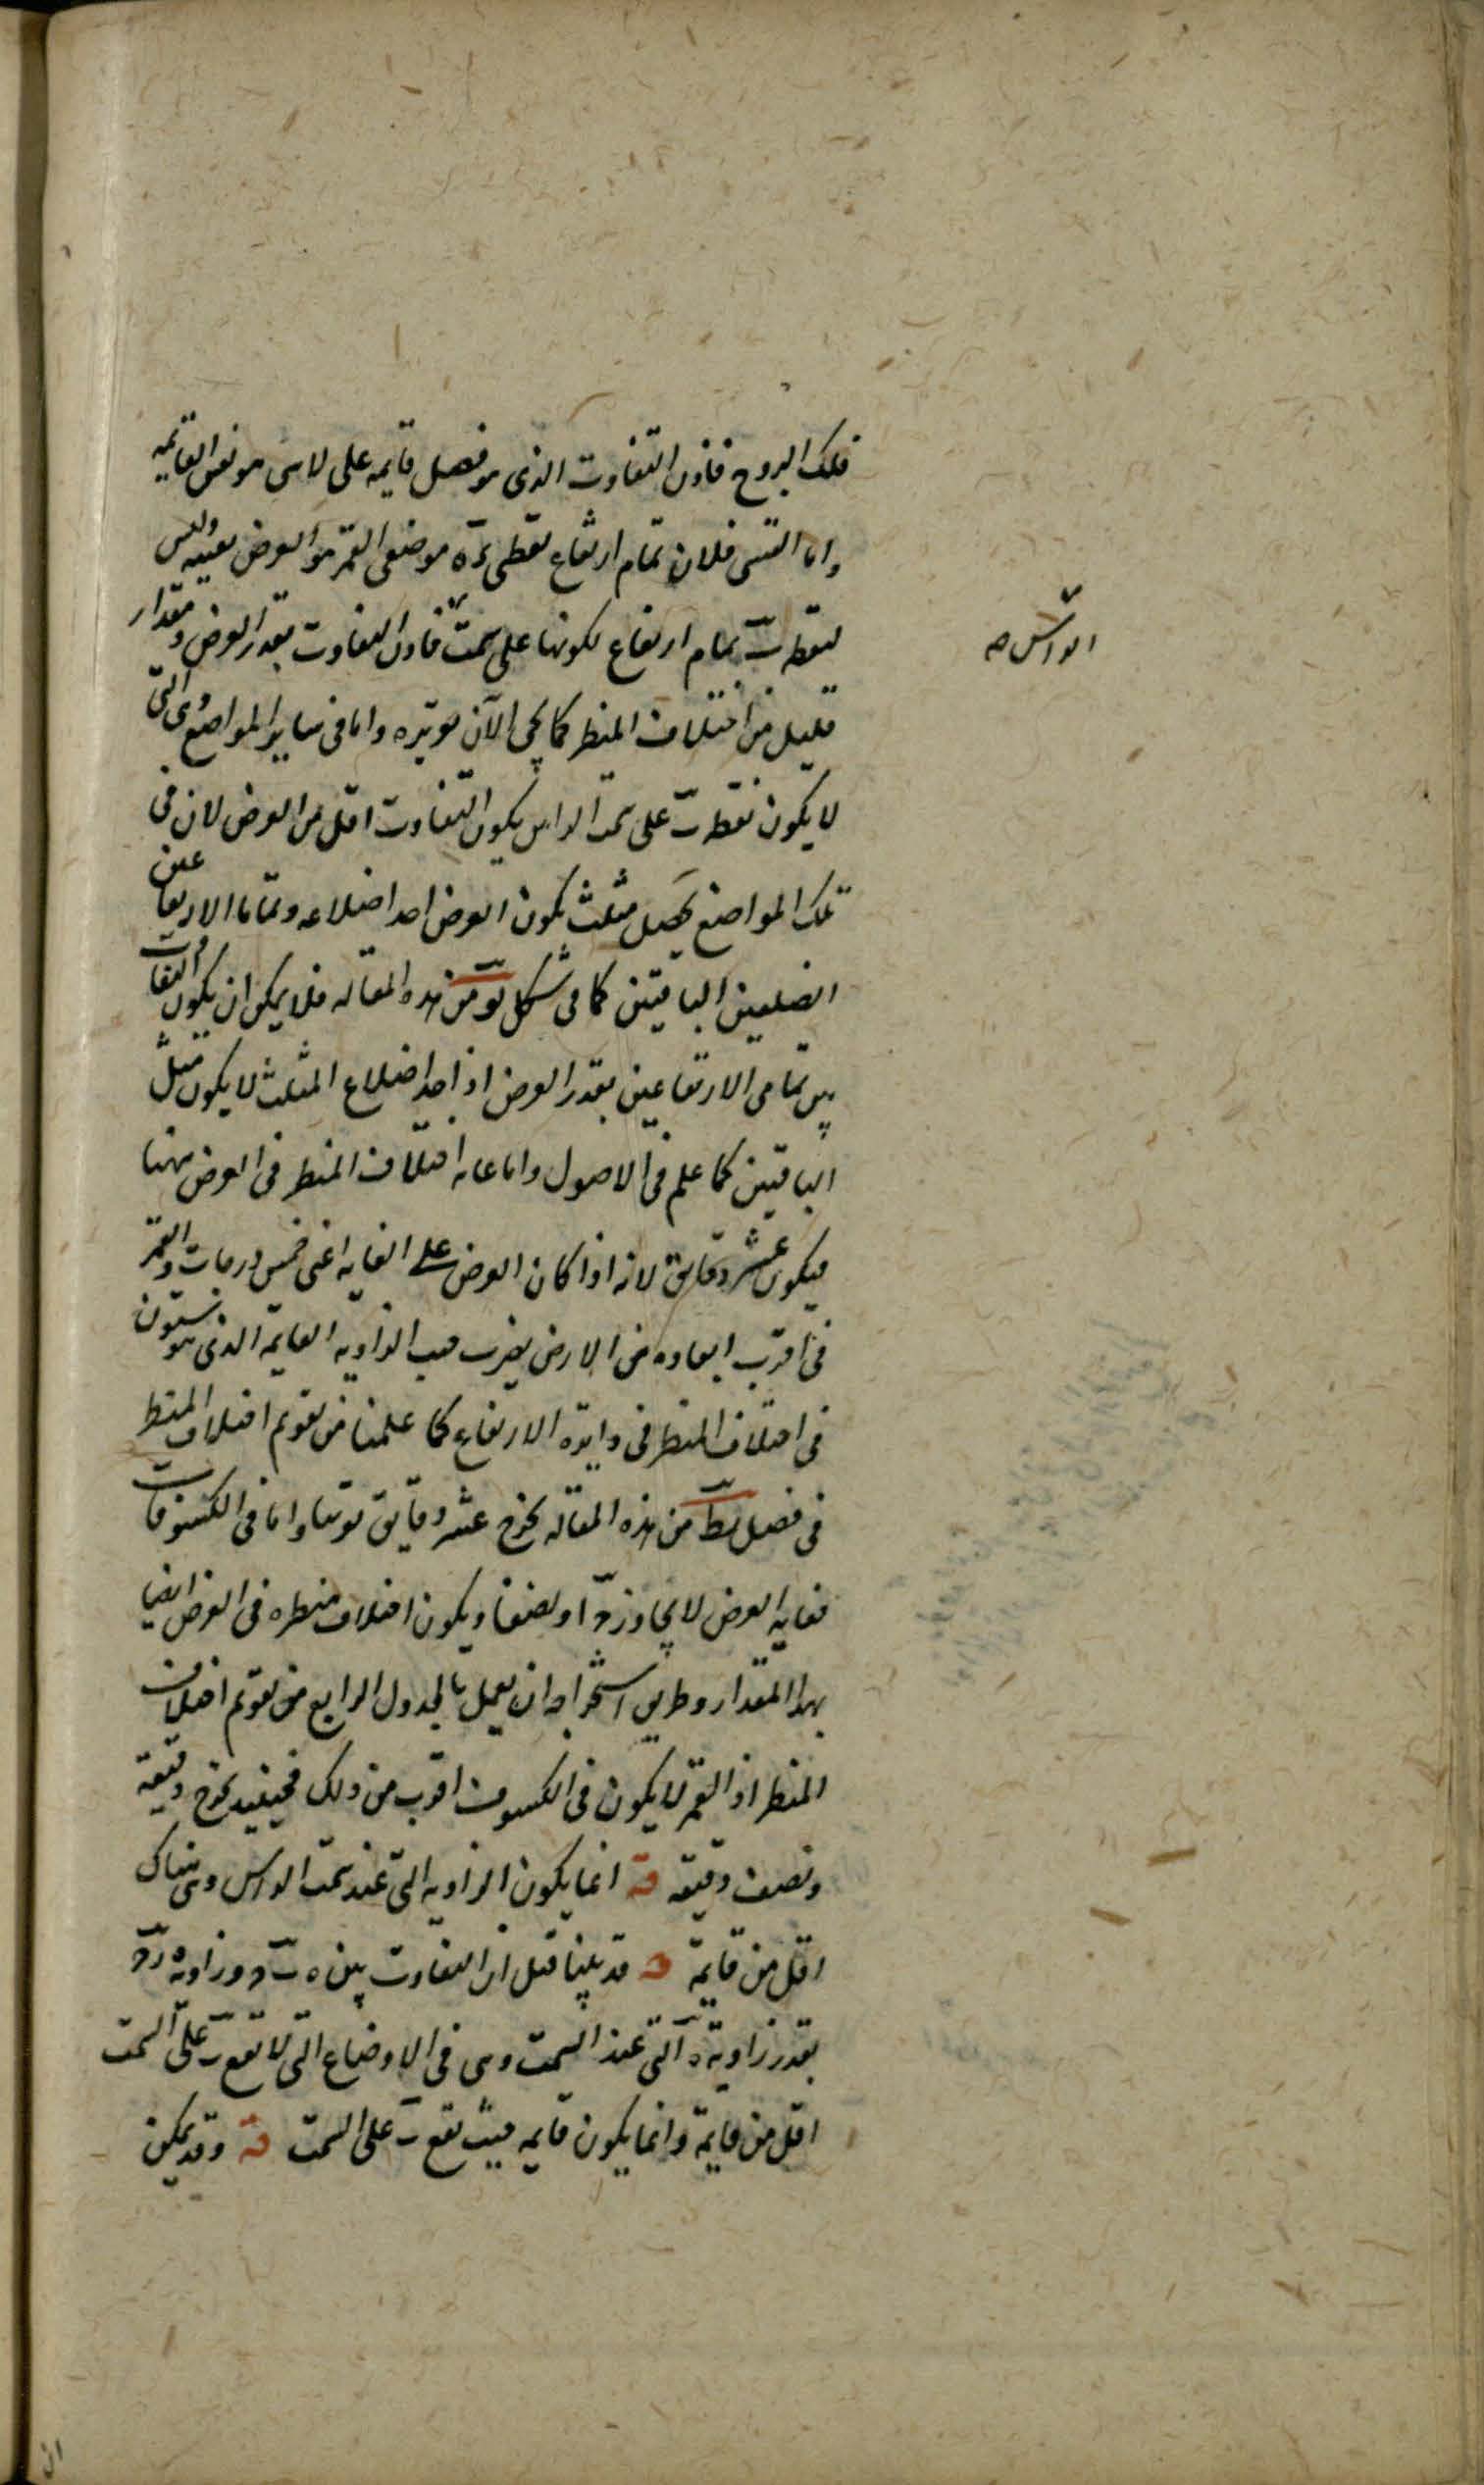 فلك البروج فاذن التفاوت الذى هو فصل قايمه على لاسى هو نفس القايمه
واما القسى فلان تمام ارتفاع نقطى ره موضعى القمر هو العرض بعينه وليس
لنقطه ب تمام ارتفاع لكونها على سمت فاذن التفاوت بقدر العرض ومقدار
الراس صح
قليل من اختلاف المنظر كما يجى الآن تويره واما فى ساير المواضع وهى التى
لا يكون نقطه ب على سمت الراس يكون التفاوت اقل من العرض لان فى
تلك المواضع يحصل مثلث يكون العرض احد اضلاعه وتماما الارتفاعين
الضلعين الباقيتين كما فى شكل يو من هذه المقاله فلا يمكن ان يكون التفاوت
بين تمامى الارتفاعين بقدر العرض اذ احد اضلاع المثلث لا يكون مثل
الباقيتين كما علم فى الاصول واما غايه اختلاف المنظر فى العرض ههنا
فيكون عشر دقايق لانه اذا كان العرض على الغايه اعنى خمس درجات والقمر
فى اقرب ابعاده من الارض يضرب جيب الزاويه القايمه الذى هو ستون
فى اختلاف المنظر فى دايرة الارتفاع كما علمنا من تقويم اختلاف المنظر
فى فصل يط من هذه المقاله يخرج عشر دقايق تويبا واما فى الكسوفات
فغايه العرض لا يجاوز حرا ونصفا ويكون اختلاف منظره فى العرض ايضا
بهذا المقدار وطريق استخراجه ان يعمل بالجدول الرابع من تقويم اختلاف
المنظر اذ القمر لا يكون فى الكسوف اقرب من ذلك فحينئذ يخرج دقيقه
ونصف دقيقه قه انما يكون الزاويه التى عند سمت الراس وهى هناك
اقل من قايمة ح قد بينا قبل ان التفاوت بين ه ب ح وزاويه ه ر ح
بقدر زاويه ه التى عند السمت وهى فى الاوضاع التى لا تقع ب على السمت
اقل من قايمة وانما يكون قايمه حيث تقع ب على السمت قه وقد يمكن
ان